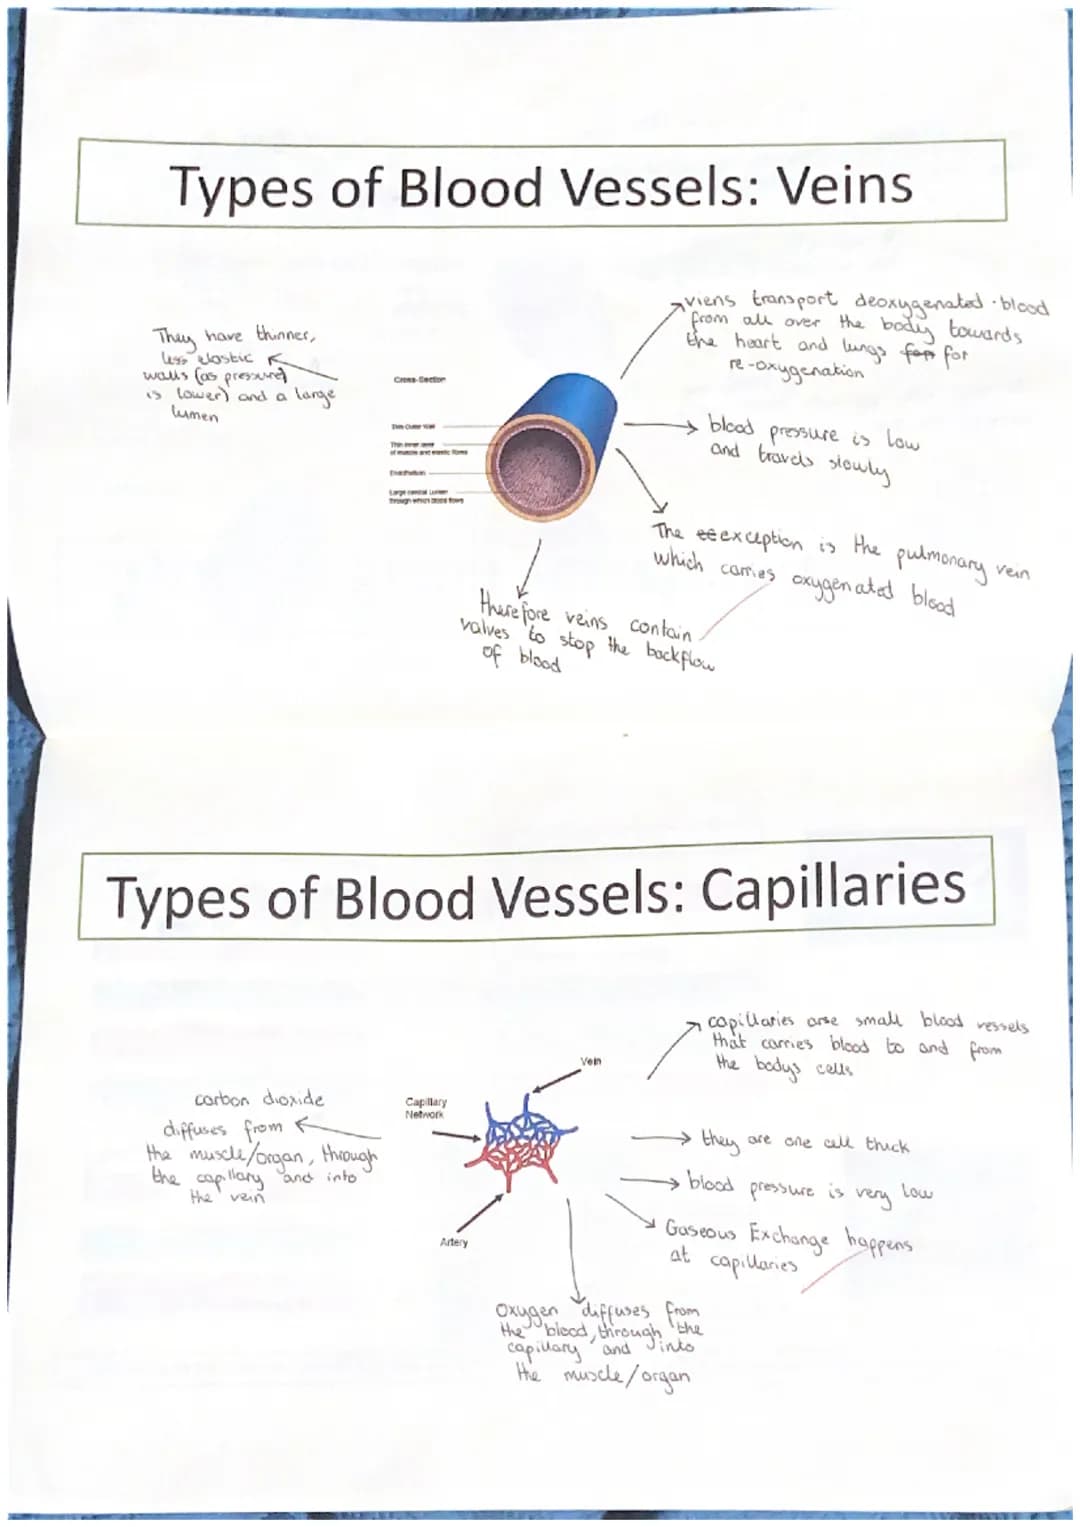 Types of Blood Vessels: Veins
viens transport deoxygenated blood
from all over the body towards
the heart and lungs for
re-oxygenation
They have thinner,
less elastic
walls (as pressure
is lower) and a large
lumen
Cross-Section
Thin Outer Wall
Thin inner layer
of muscle and elastic fibres
Endothelium
Large central Lumen
through which blood flows
blood pressure is low
and travels slowly
The exception is the pulmonary vein
which carries oxygenated blood
therefore veins contain
valves to stop the backflow
of blood
Types of Blood Vessels: Capillaries
capillaries are small blood vessels
that carries blood to and from
the bodys cells
Vein
Capillary
Network
Artery
carbon dioxide
diffuses from
the muscle/organ, through
the capillary and into
the vein
they are one cell thick
blood pressure is very low
Gaseous Exchange happens
at capillaries
Oxygen diffuses from
the blood, through the
capillary and into
the muscle/organ